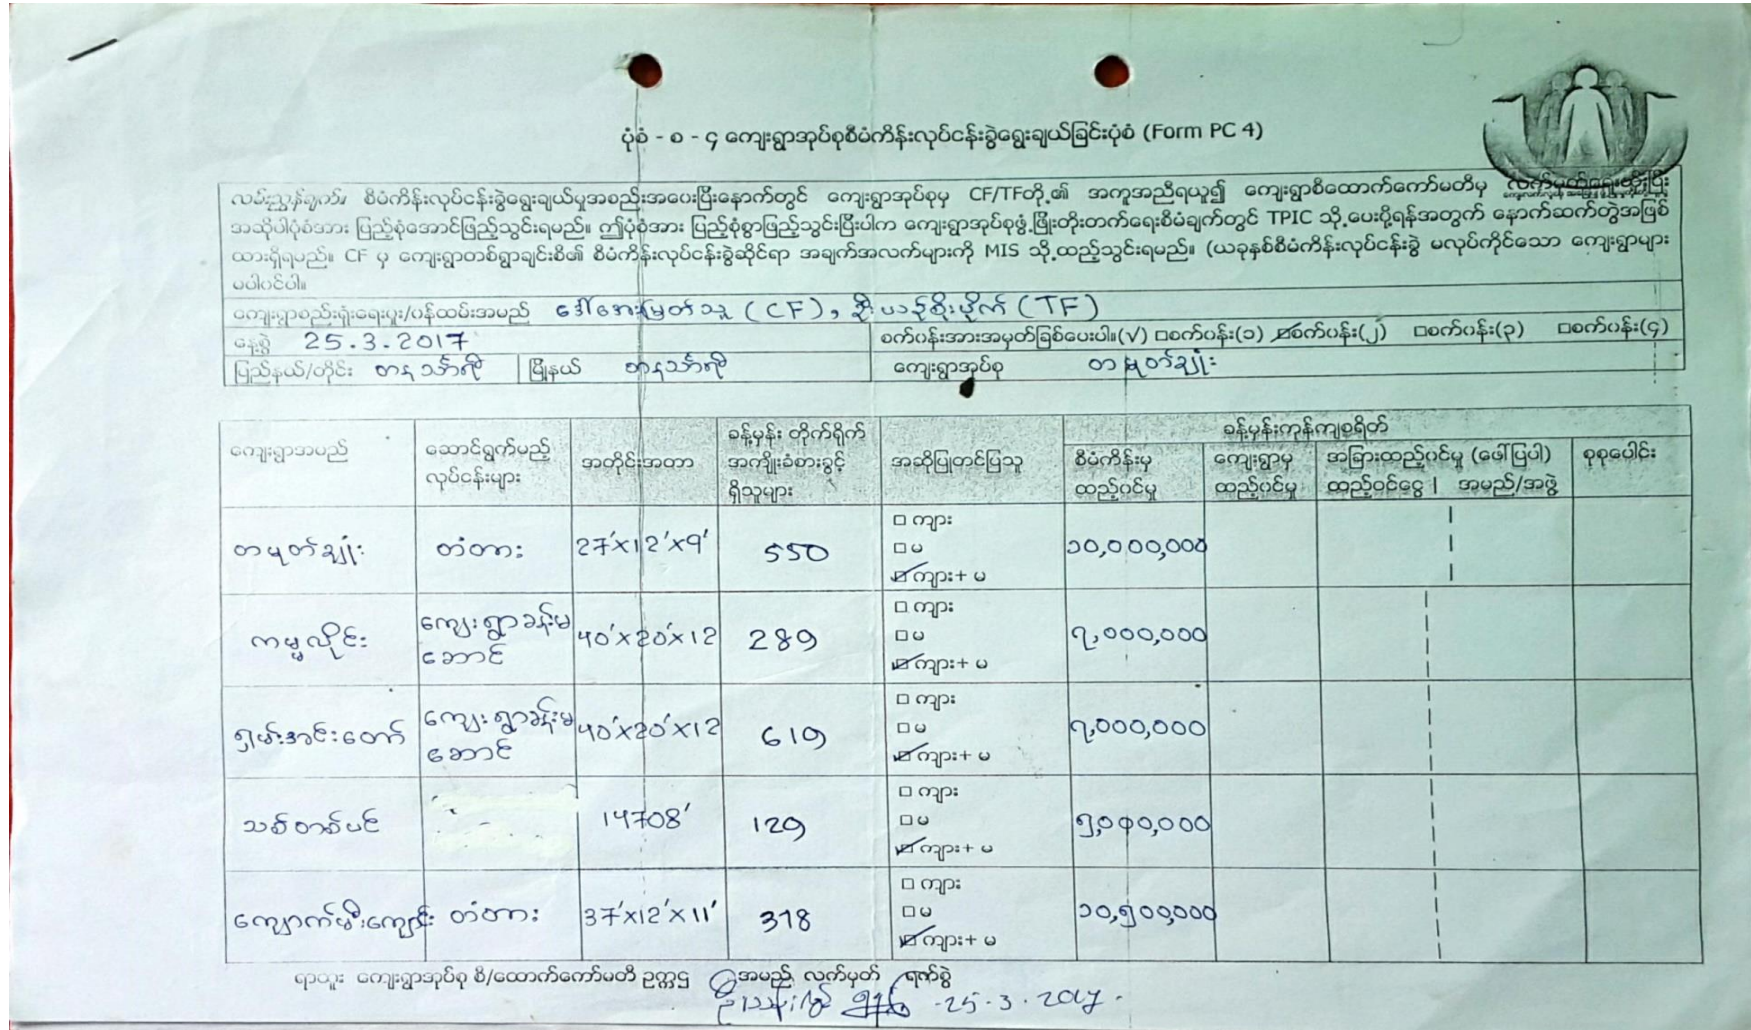 ပုံစံ - စ - ၄ ကျေးရွာအုပ်စုစီမံကိန်းလုပ်ငန်းခွဲရွေးချယ်ခြင်းပုံစံ (Form PC 4)
လမ်းညွှန်ချက်။ စီမံကိန်းလုပ်ငန်းခွဲရွေးချယ်မှုအစည်းအဝေးပြီးနောက်တွင် ကျေးရွာအုပ်စုမှ CF/TFတို့၏ အကူအညီရယူ၍ ကျေးရွာစီထောက်ကော်မတီမှ လက်မှတ်ရေးထိုးပြီး
အဆိုပါပုံစံအား ပြည့်စုံအောင်ဖြည့်သွင်းရမည်။ ဤပုံစံအား ပြည့်စုံစွာဖြည့်သွင်းပြီးပါက ကျေးရွာအုပ်စုဖွံ့ဖြိုးတိုးတက်ရေးစီမံချက်တွင် TPIC သို့ပေးပို့ရန်အတွက် နောက်ဆက်တွဲအဖြစ်
ထားရှိရမည်။ CF မှ ကျေးရွာတစ်ရွာချင်းစီ၏ စီမံကိန်းလုပ်ငန်းခွဲဆိုင်ရာ အချက်အလက်များကို MIS သို့ထည့်သွင်းရမည်။ (ယခုနှစ်စီမံကိန်းလုပ်ငန်းခွဲ မလုပ်ကိုင်သော ကျေးရွာများ
မပါဝင်ပါ။
ကျေးရွာစည်းရုံးရေးမှူး/ဝန်ထမ်းအမည် ဒေါ်အေးမြတ်သူ (CF), ဦးယဉ်စိုးပိုက် (TF)
နေ့စွဲ 25.3.2017 စက်ဝန်းအားအမှတ်ခြစ်ပေးပါ။(√) □စက်ဝန်း(၁) ☑စက်ဝန်း(၂) □စက်ဝန်း(၃) □စက်ဝန်း(၄)
ပြည်နယ်/တိုင်း တနင်္သာရီ မြို့နယ် တနင်္သာရီ ကျေးရွာအုပ်စု တမုတ်ချုံး
ကျေးရွာအမည် ဆောင်ရွက်မည့် လုပ်ငန်းများ အတိုင်းအတာ ခန့်မှန်း တိုက်ရိုက် အကျိုးခံစားခွင့် ရှိသူများ အဆိုပြုတင်ပြသူ ခန့်မှန်းကုန်ကျစရိတ်
စီမံကိန်းမှ ထည့်ဝင်မှု ကျေးရွာမှ ထည့်ဝင်မှု အခြားထည့်ဝင်မှု (ဖော်ပြပါ) ထည့်ဝင်ငွေ | အမည်/အဖွဲ့ စုစုပေါင်း
တမုတ်ချုံး တံတား 27'x12'x9' 550 □ ကျား □ မ ☑ ကျား+ မ ၁၀,၀၀၀,၀၀၀
ကမ္မလိုင်း ကျေးရွာခန်းမ ဆောင် 40'x20'x12 289 □ ကျား □ မ ☑ ကျား+ မ ၇,၀၀၀,၀၀၀
ရှမ်းအင်းတော် ကျေးရွာခန်းမ ဆောင် 40'x20'x12 619 □ ကျား □ မ ☑ ကျား+ မ ၇,၀၀၀,၀၀၀
သစ်တစ်ပင် 14708' 129 □ ကျား □ မ ☑ ကျား+ မ ၅,၀၀၀,၀၀၀
တံတား 37'x12'x11' 318 □ ကျား □ မ ☑ ကျား+ မ ၁၀,၅၀၀,၀၀၀
ရာထူး ကျေးရွာအုပ်စု စီ/ထောက်ကော်မတီ ဥက္ကဋ္ဌ အမည် လက်မှတ် ရက်စွဲ
25.3.2017.